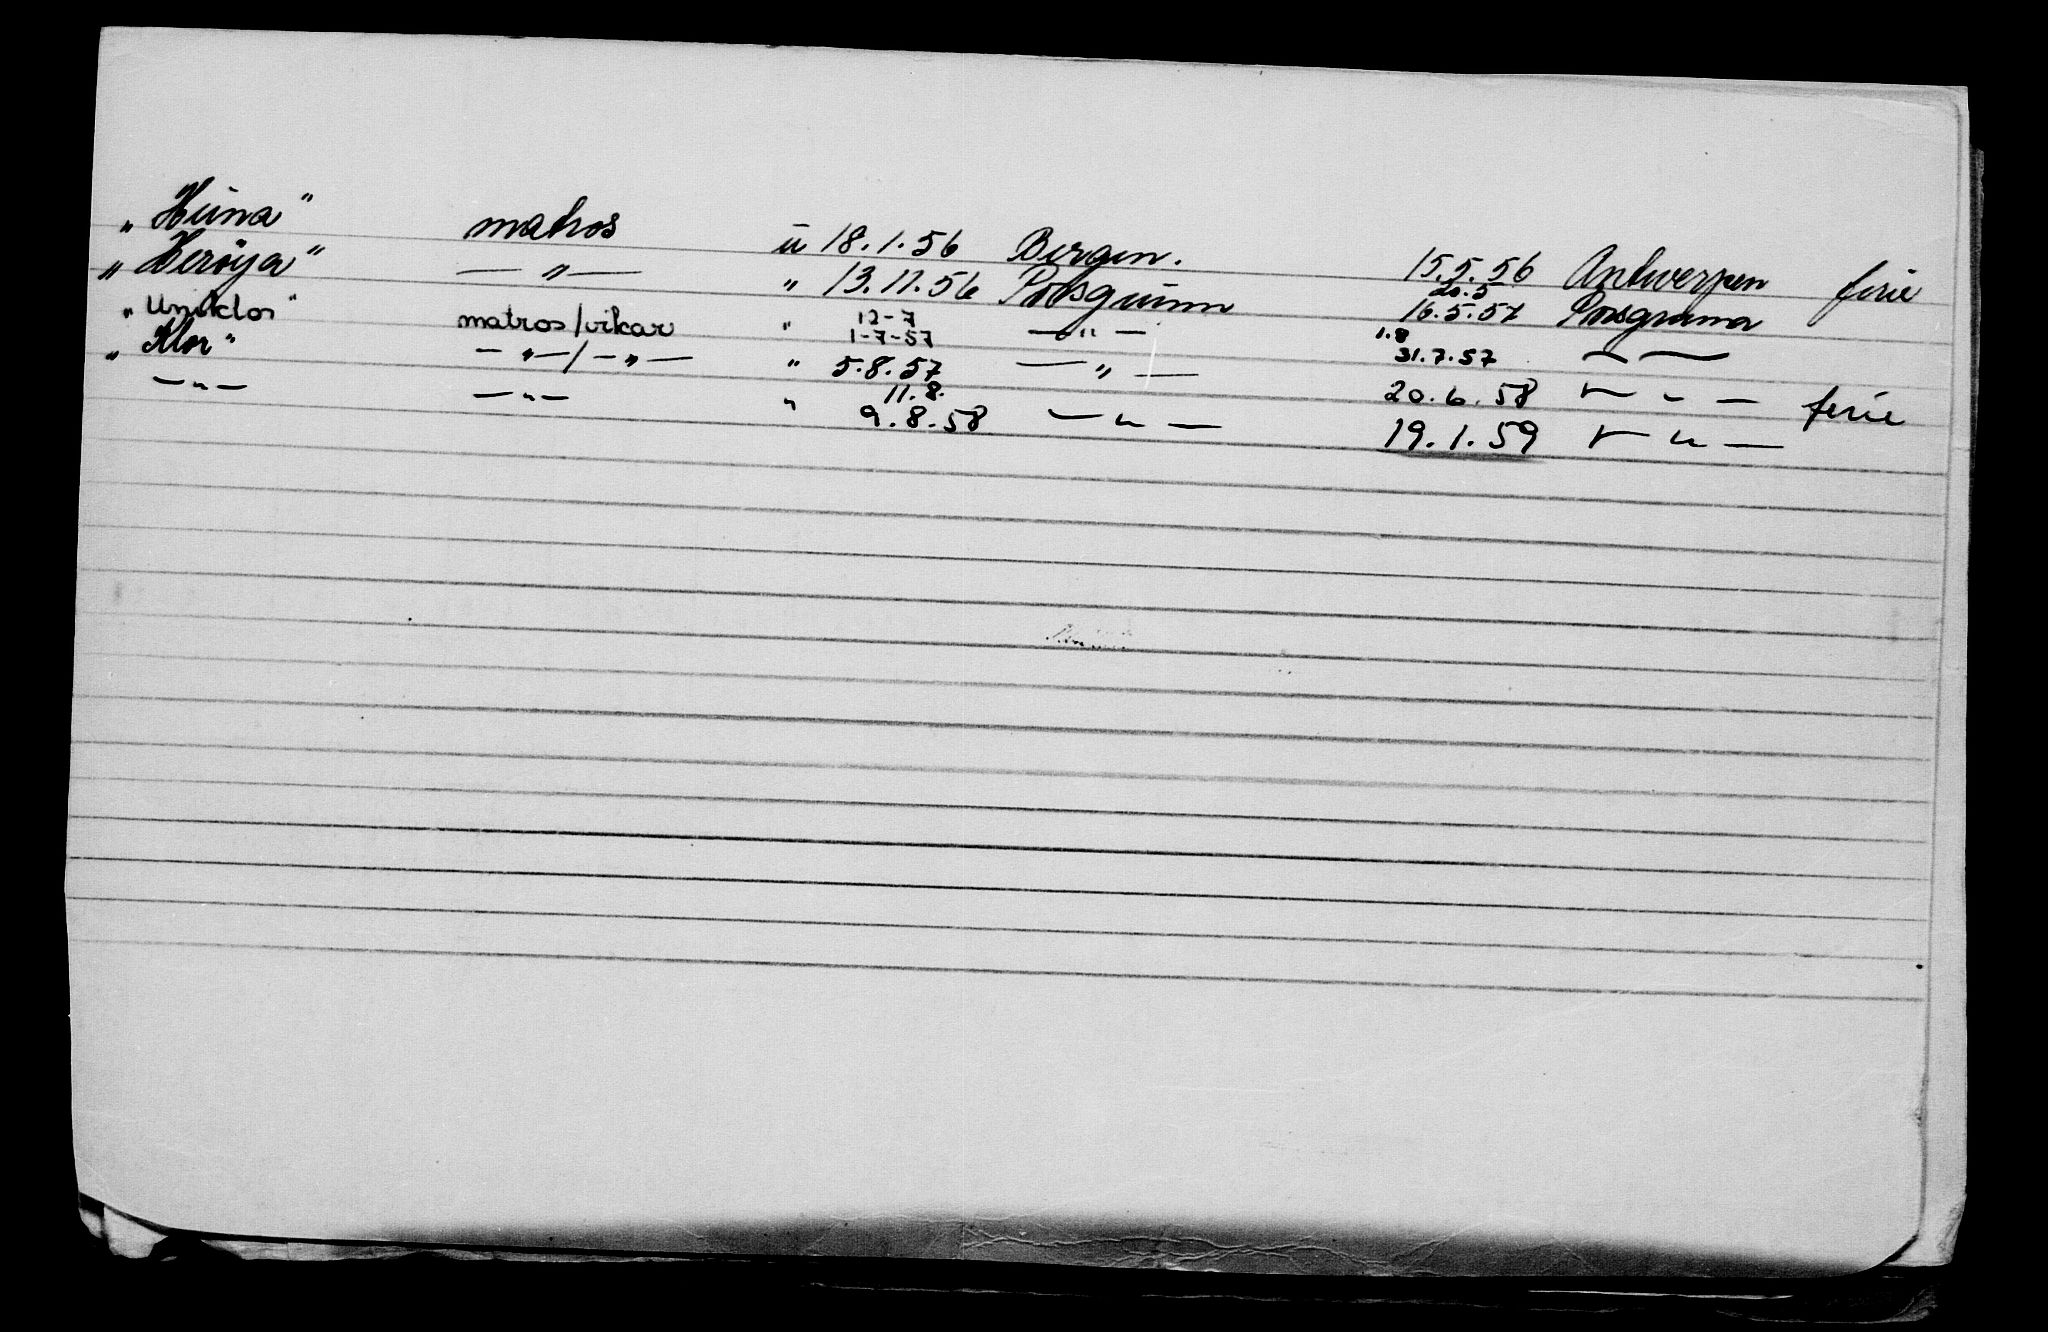 „ Heina " matros u 18.1.56 Bergen. 15.5.56 Antwerpen ferie
„ Herøya " — " — " 13.11.56 Porsgrunn 20.5 16.5.57 Porsgrunn
„ Uniklos " matros/vikar " 12-7 1-7-57 — " — 1.8 31.7.57 — —
„ Klor " — " — / — " — " 5.8.57 — " — 20.6.58 — " — ferie
— " — — " — " 11.8. 9.8.58 — " — 19.1.59 — " —